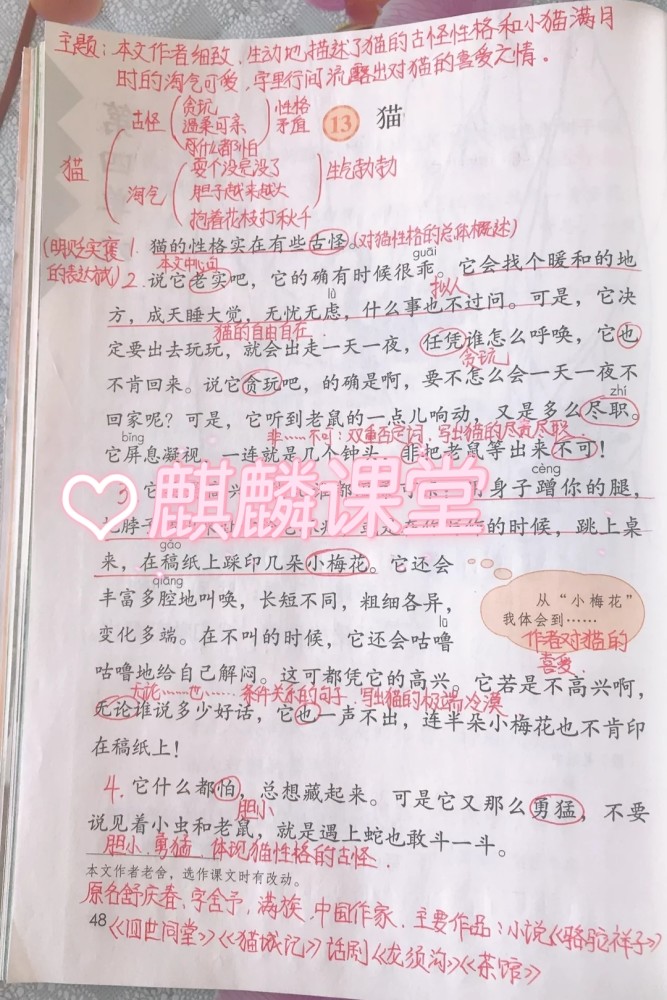 主题：本文作者细致、生动地描述了猫的古怪性格和小猫满月
时的淘气可爱，字里行间流露出对猫的喜爱之情。
猫
古怪
贪玩
温柔可亲
什么都怕
性格
矛盾
淘气
耍个没完没了
胆子越来越大
抱着花枝打秋千
生气勃勃
13 猫
(明贬实褒
的表达方式)
1. 猫的性格实在有些古怪。(对猫性格的总体概述)
本文中心句
guāi
2. 说它老实吧，它的确有时候很乖。它会找个暖和的地
拟人
lǜ
方，成天睡大觉，无忧无虑，什么事也不过问。可是，它决
猫的自由自在
定要出去玩玩，就会出走一天一夜，任凭谁怎么呼唤，它也
贪玩
不肯回来。说它贪玩吧，的确是啊，要不怎么会一天一夜不
zhí
回家呢？可是，它听到老鼠的一点儿响动，又是多么尽职。
非……不可：双重否定词，写出猫的尽职尽职
bǐng
它屏息凝视，一连就是几个钟头，非把老鼠等出来不可！
麒麟课堂
cèng
身子蹭你的腿，
的时候，跳上桌
gǎo
来，在稿纸上踩印几朵小梅花。它还会
qiāng
丰富多腔地叫唤，长短不同，粗细各异，
lū
变化多端。在不叫的时候，它还会咕噜
咕噜地给自己解闷。这可都凭它的高兴。它若是不高兴啊，
无论……也……条件关系的句子，写出猫的极端冷漠
无论谁说多少好话，它也一声不出，连半朵小梅花也不肯印
在稿纸上！
从“小梅花”
我体会到……
作者对猫的
喜爱
4. 它什么都怕，总想藏起来。可是它又那么勇猛，不要
胆小
说见着小虫和老鼠，就是遇上蛇也敢斗一斗。
胆小、勇猛，体现猫性格的古怪．
本文作者老舍，选作课文时有改动。
原名舒庆春、字舍予，满族，中国作家．主要作品：小说《骆驼祥子》
48
《四世同堂》《猫城记》话剧《龙须沟》《茶馆》